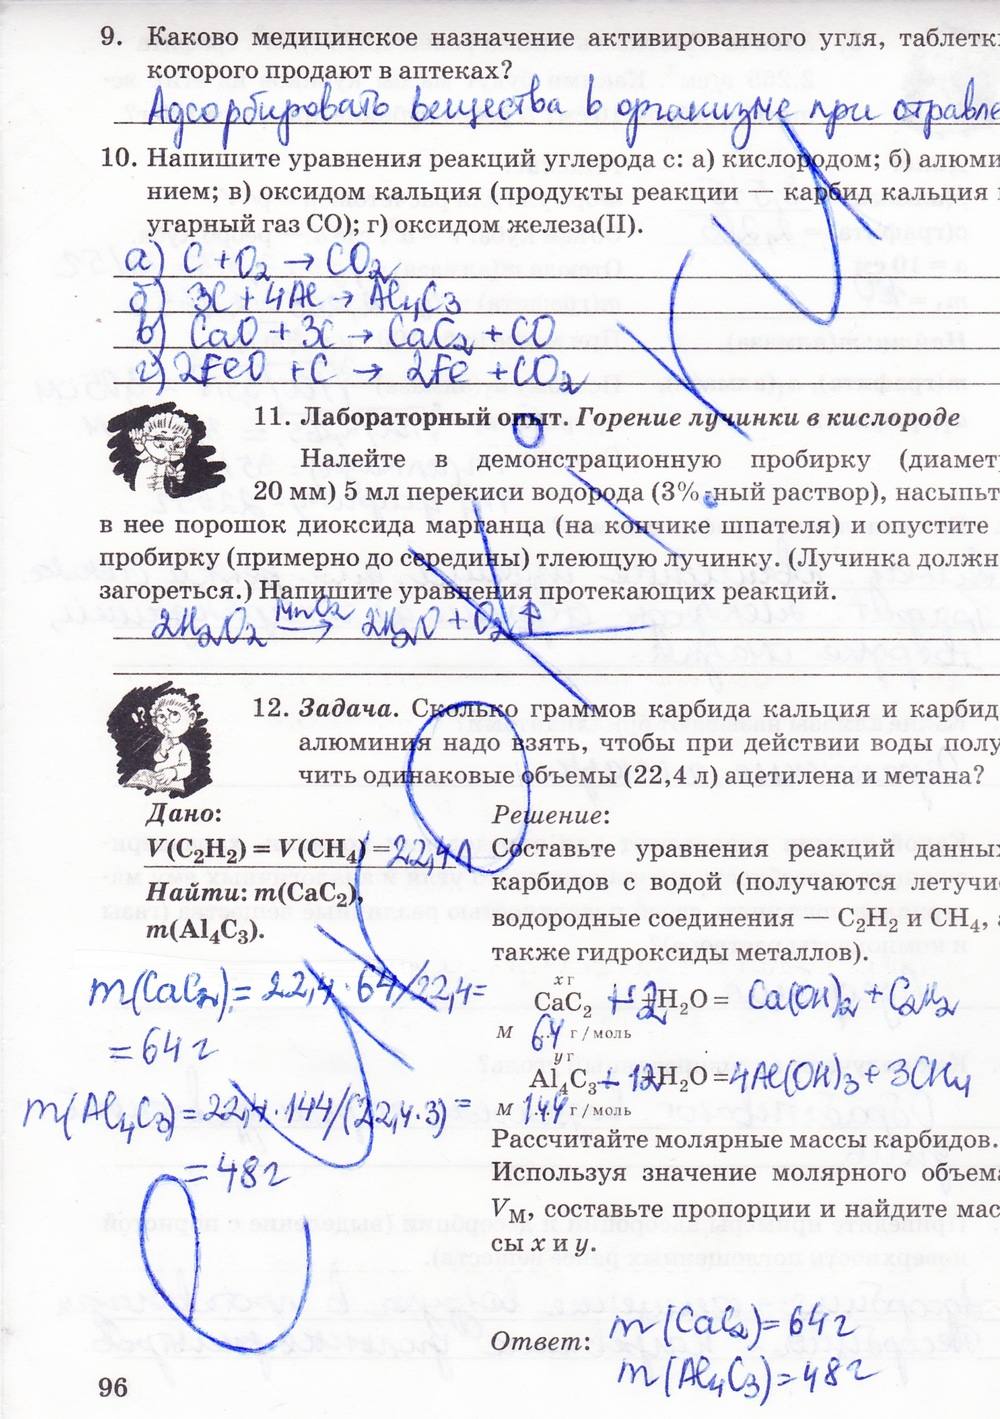 9. Каково медицинское назначение активированного угля, таблетк
которого продают в аптеках?
Адсорбировать вещества в организме при отравле
10. Напишите уравнения реакций углерода с: а) кислородом; б) алюми
нием; в) оксидом кальция (продукты реакции — карбид кальция и
угарный газ CO); г) оксидом железа(II).
а) C + O₂ → CO₂
б) 3C + 4Al → Al₄C₃
в) CaO + 3C → CaC₂ + CO
г) 2FeO + C → 2Fe + CO₂
11. Лабораторный опыт. Горение лучинки в кислороде
Налейте в демонстрационную пробирку (диамет
20 мм) 5 мл перекиси водорода (3%-ный раствор), насыпьт
в нее порошок диоксида марганца (на кончике шпателя) и опустите
пробирку (примерно до середины) тлеющую лучинку. (Лучинка должн
загореться.) Напишите уравнения протекающих реакций.
MnO₂
2H₂O₂ → 2H₂O + O₂↑
12. Задача. Сколько граммов карбида кальция и карбид
алюминия надо взять, чтобы при действии воды полу
чить одинаковые объемы (22,4 л) ацетилена и метана?
Дано:
V(C₂H₂) = V(CH₄) = 22,4 л
Найти: m(CaC₂),
m(Al₄C₃).
m(CaC₂) = 22,4 · 64/22,4 =
= 64 г
m(Al₄C₃) = 22,4 · 144/(22,4 · 3) =
= 48 г
Решение:
Составьте уравнения реакций данных
карбидов с водой (получаются летучие
водородные соединения — C₂H₂ и CH₄, а
также гидроксиды металлов).
x г
CaC₂ + 2H₂O = Ca(OH)₂ + C₂H₂
M 64 г/моль
y г
Al₄C₃ + 12H₂O = 4Al(OH)₃ + 3CH₄
M 144 г/моль
Рассчитайте молярные массы карбидов.
Используя значение молярного объема
Vм, составьте пропорции и найдите мас
сы x и y.
Ответ: m(CaC₂) = 64 г
m(Al₄C₃) = 48 г
96